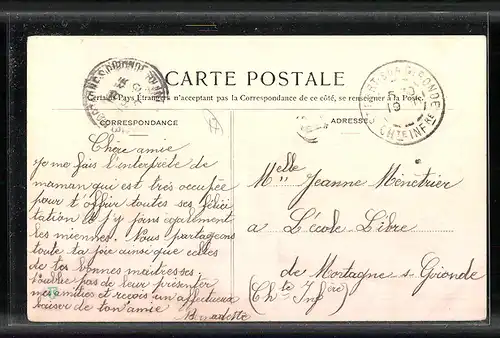 CARTE POSTALE
Certains Pays Etrangers n'acceptant pas la Correspondance de ce côté, se renseigner à la Poste.
CORRESPONDANCE
ADRESSE
Chère amie
je me fais l'interprète de
maman qui est très occupée
pour t'offrir toutes ses félici
tation et j'y joins également
les miennes. Nous partageons
toute ta joie ainsi que celles
de tes bonnes maîtresses
N'oublie pas de leur présenter
nos amitiés et reçois un affectueux
baiser de ton amie
Bernadette
Melle Jeanne Ménétrier
a L'école Libre
de Mortagne s. Gironde
(Chte Infre)
GIRONDE
CHTE INFRE